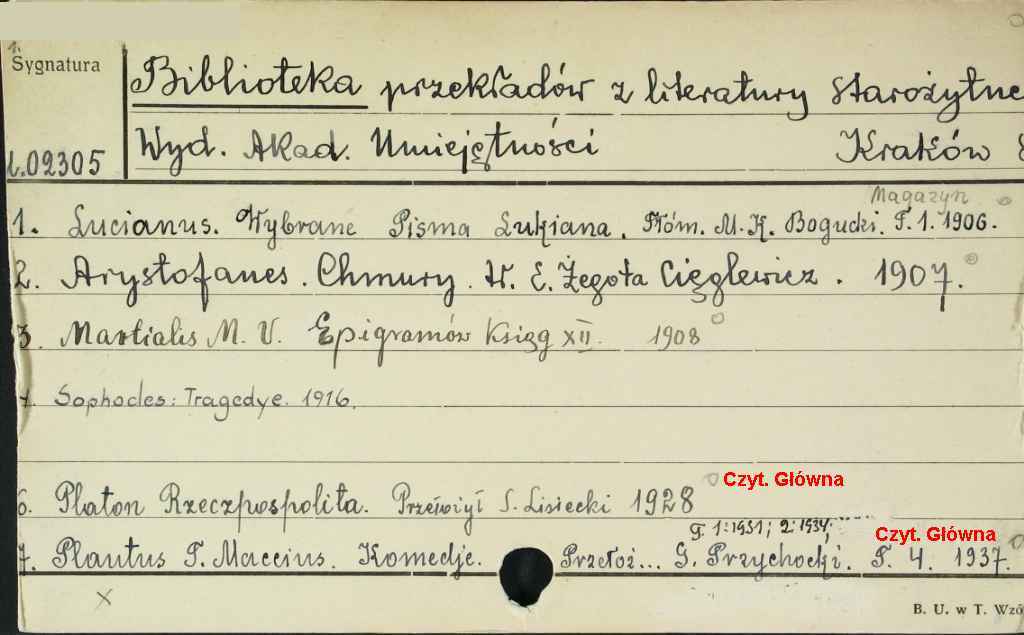 Sygnatura
Biblioteka przekładów z literatury Starożytne
Wyd. Akad. Umiejętności Kraków
02305
Magazyn
1. Lucianus. Wybrane Pisma Lukiana. Tłóm. M. K. Bogucki. T. 1. 1906.
2. Arystofanes. Chmury. W. E. Żegota Cięglewicz. 1907.
3. Martialis M. V. Epigramów Ksiąg XII. 1908
Sophocles: Tragedye. 1916.
Czyt. Główna
6. Platon Rzeczpospolita. S. Lisiecki 1928
T. 1:1931; 2:1934; Czyt. Główna
7. Plautus T. Maccius. Komedje. Przełoż... G. Przychocki. T. 4. 1937.
X
B. U. w T. Wzó